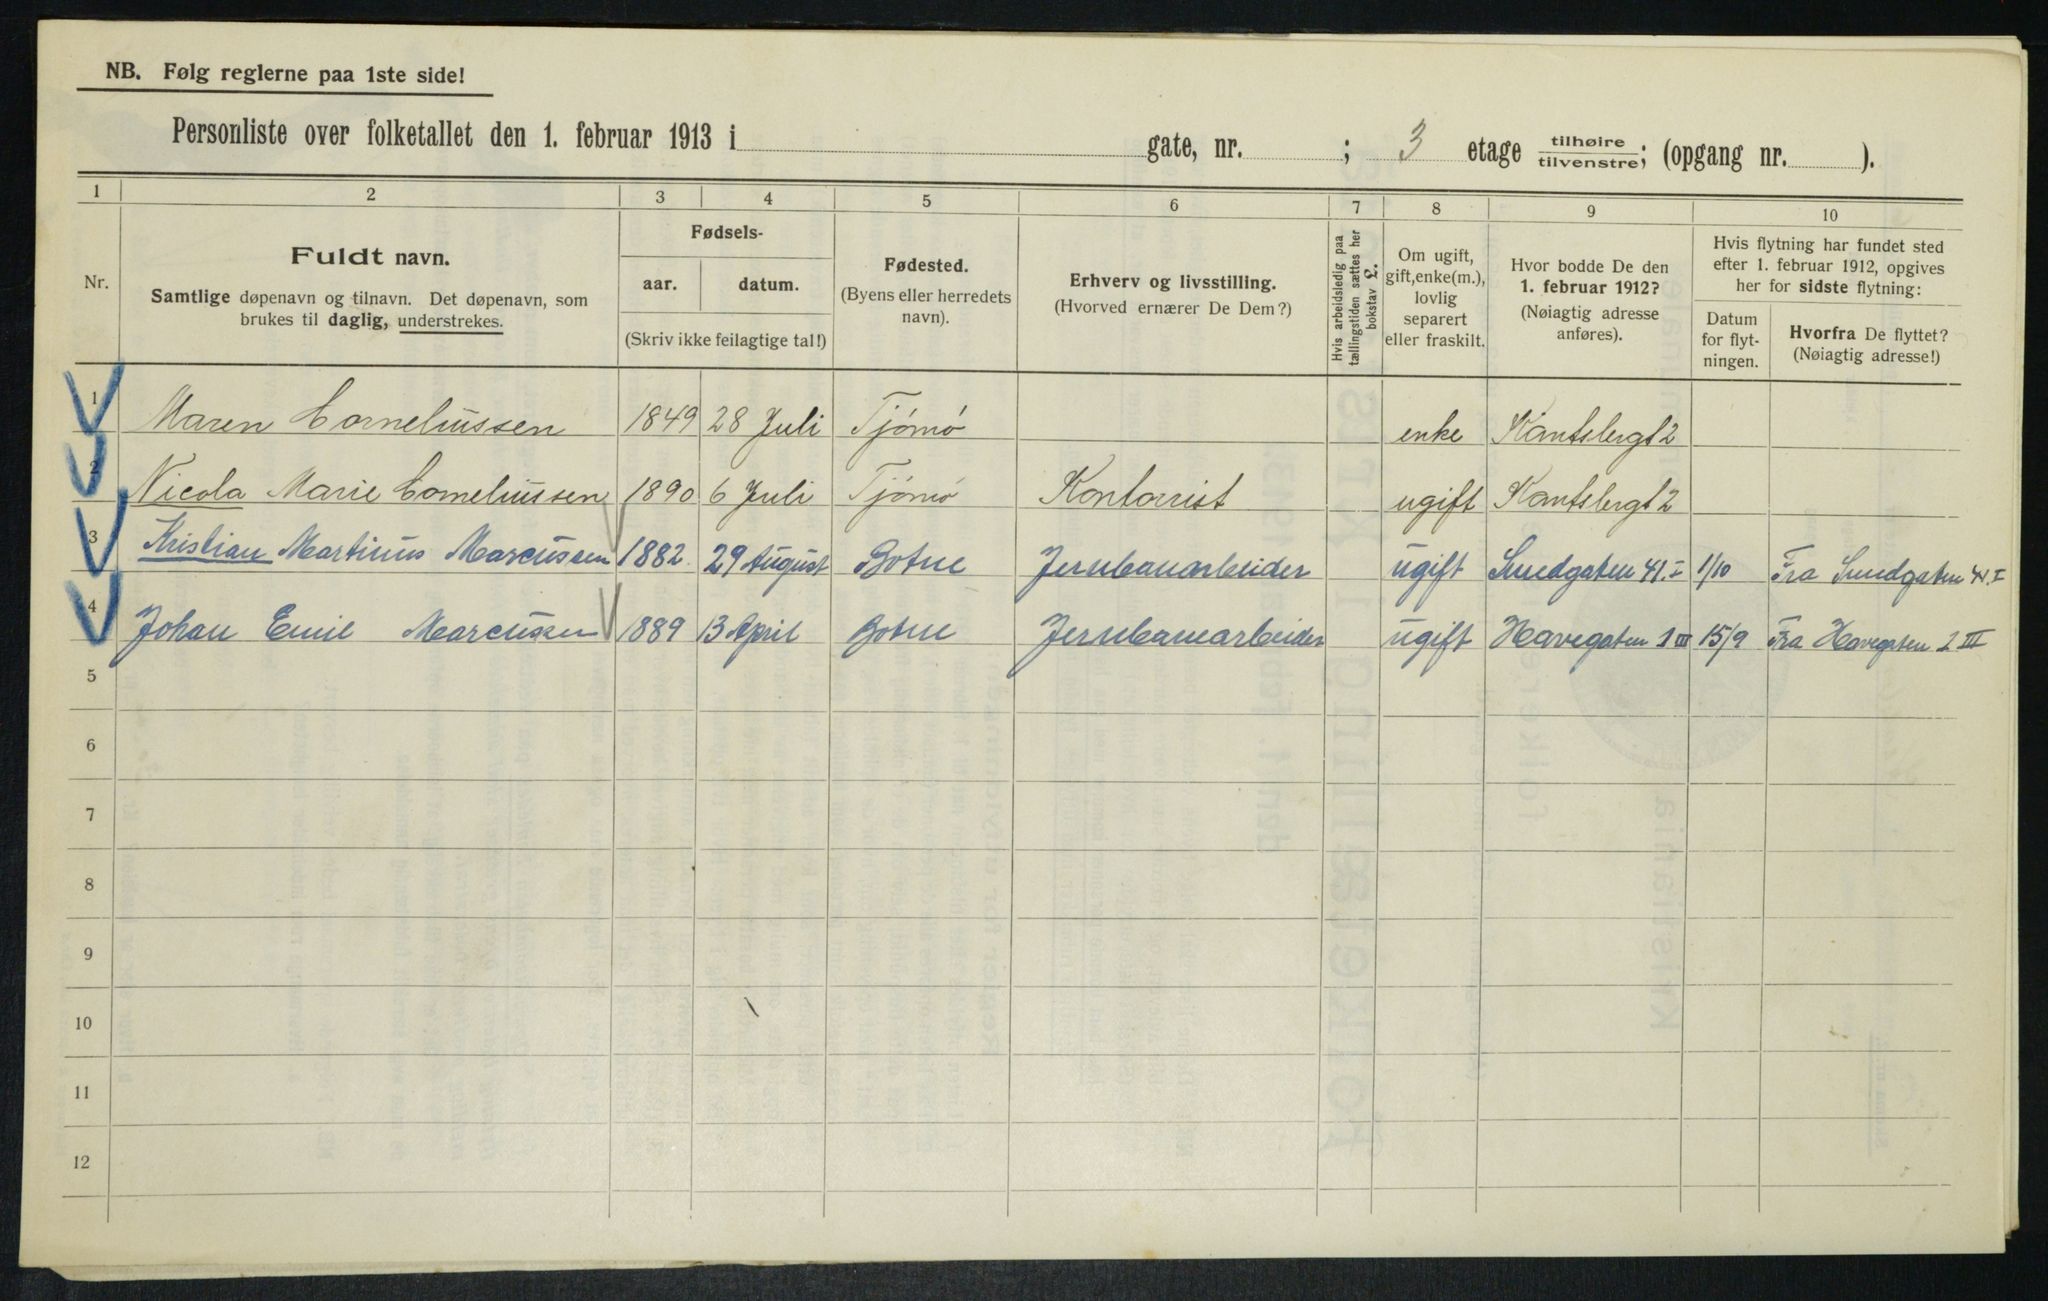 NB. Følg reglerne paa 1ste side!
Personliste over folketallet den 1. februar 1913 i gate, nr. ; 3 etage tilhøire tilvenstre; (opgang nr. ).
1 2 3 4 5 6 7 8 9 10
Nr.
Fuldt navn.
Samtlige døpenavn og tilnavn. Det døpenavn, som
brukes til daglig, understrekes.
Fødsels-
aar. datum.
(Skriv ikke feilagtige tal!)
Fødested.
(Byens eller herredets
navn).
Erhverv og livsstilling.
(Hvorved ernærer De Dem?)
Hvis arbeidsledig paa
tællingstiden sættes her
bokstav L.
Om ugift,
gift, enke(m.),
lovlig
separert
eller fraskilt.
Hvor bodde De den
1. februar 1912?
(Nøiagtig adresse
anføres).
Hvis flytning har fundet sted
efter 1. februar 1912, opgives
her for sidste flytning:
Datum
for flyt-
ningen.
Hvorfra De flyttet?
(Nøiagtig adresse!)
1 Maren Corneliussen 1849 28 Juli Tjømø enke Kantsbergt 2
2 Nicola Marie Corneliussen 1890 6 Juli Tjømø Kontorrist ugift Kantsbergt 2
3 Kristian Martinus Marcussen 1882 29 August Botne Jernbanarbeider ugift Smedgaten 41. I 1/10 Fra Smedgaten 41. I
4 Johan Emil Marcussen 1889 13 April Botne Jernbanearbeider ugift Havegaten 1 III 15/9 Fra Havegaten 1 III
5
6
7
8
9
10
11
12